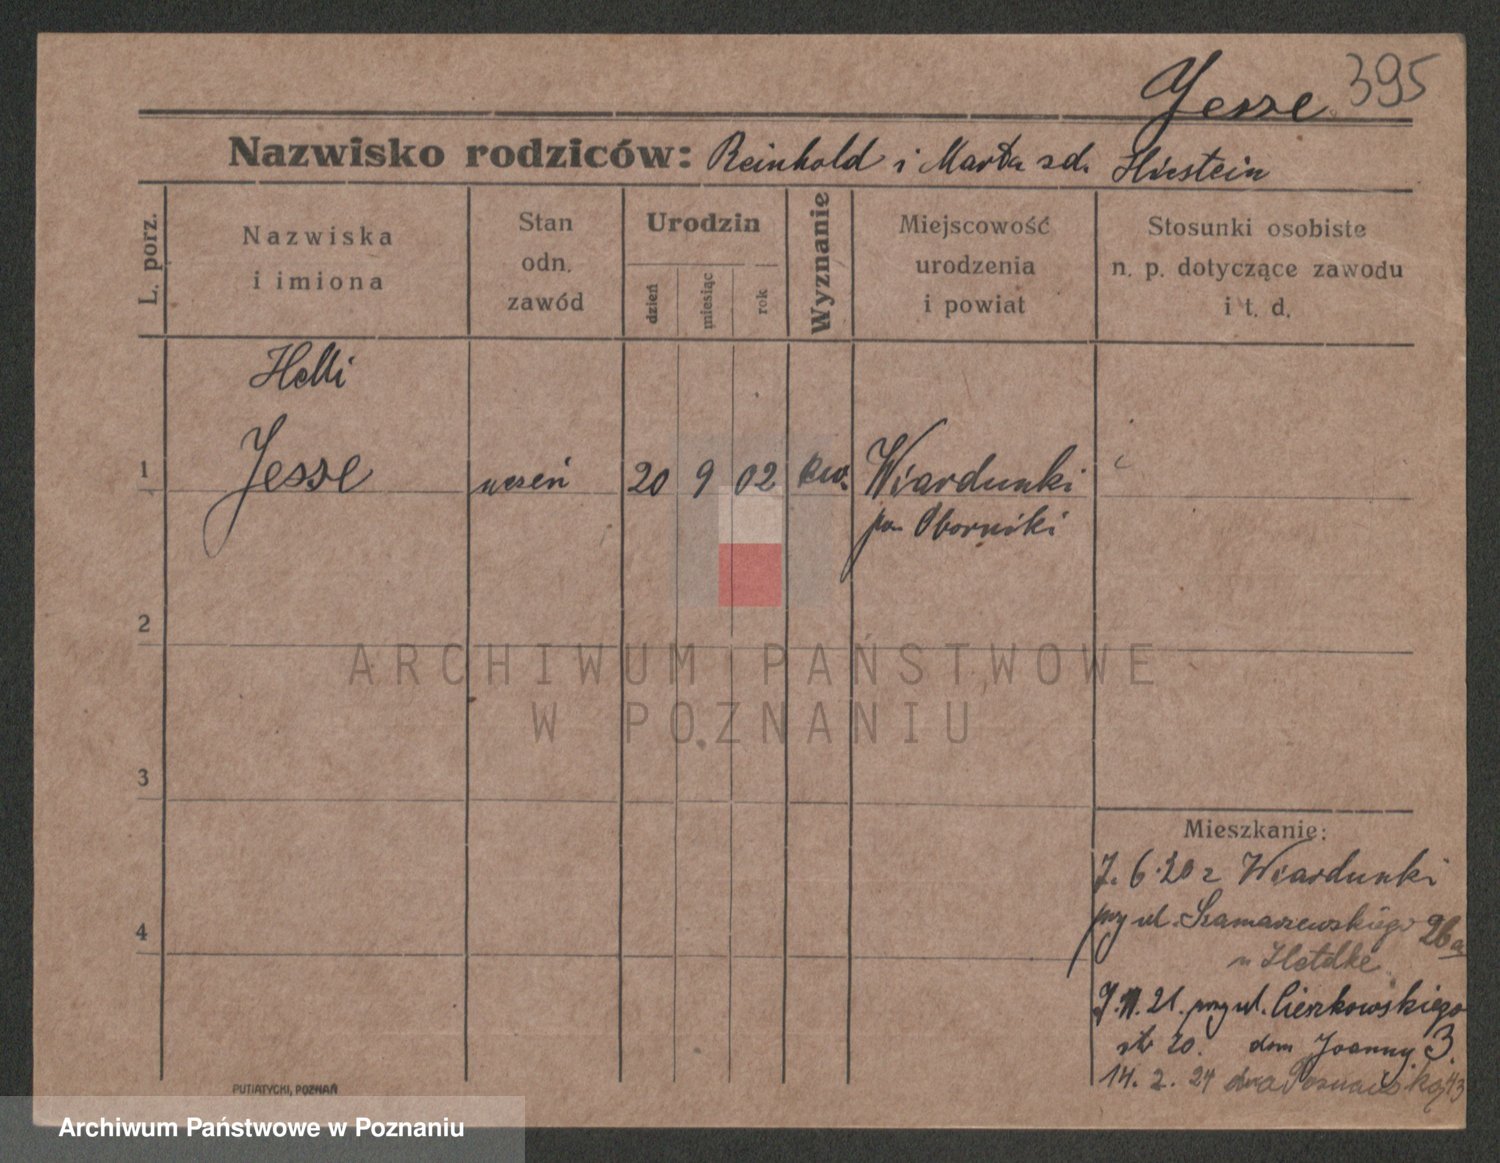 Jesse 395
Nazwisko rodziców: Reinhold i Marta zd. Hirstein
L. porz.
Nazwiska
i imiona
Stan
odn.
zawód
Urodzin
dzień
miesiąc
rok
Wyznanie
Miejscowość
urodzenia
i powiat
Stosunki osobiste
n. p. dotyczące zawodu
i t. d.
Helli
1 Jesse uczeń 20 9 02 Wiardunki
pow. Oborniki
2
3
4
Mieszkanie:
7. 6. 20 z Wiardunki
przy ul. Szamarzewskiego 26a
u
21. przy ul. Cieszkowskiego
str 20. dom Joanny 3.
14. 2. 24
PUTIATYCKI, POZNAŃ
ARCHIWUM PAŃSTWOWE
W POZNANIU
Archiwum Państwowe w Poznaniu